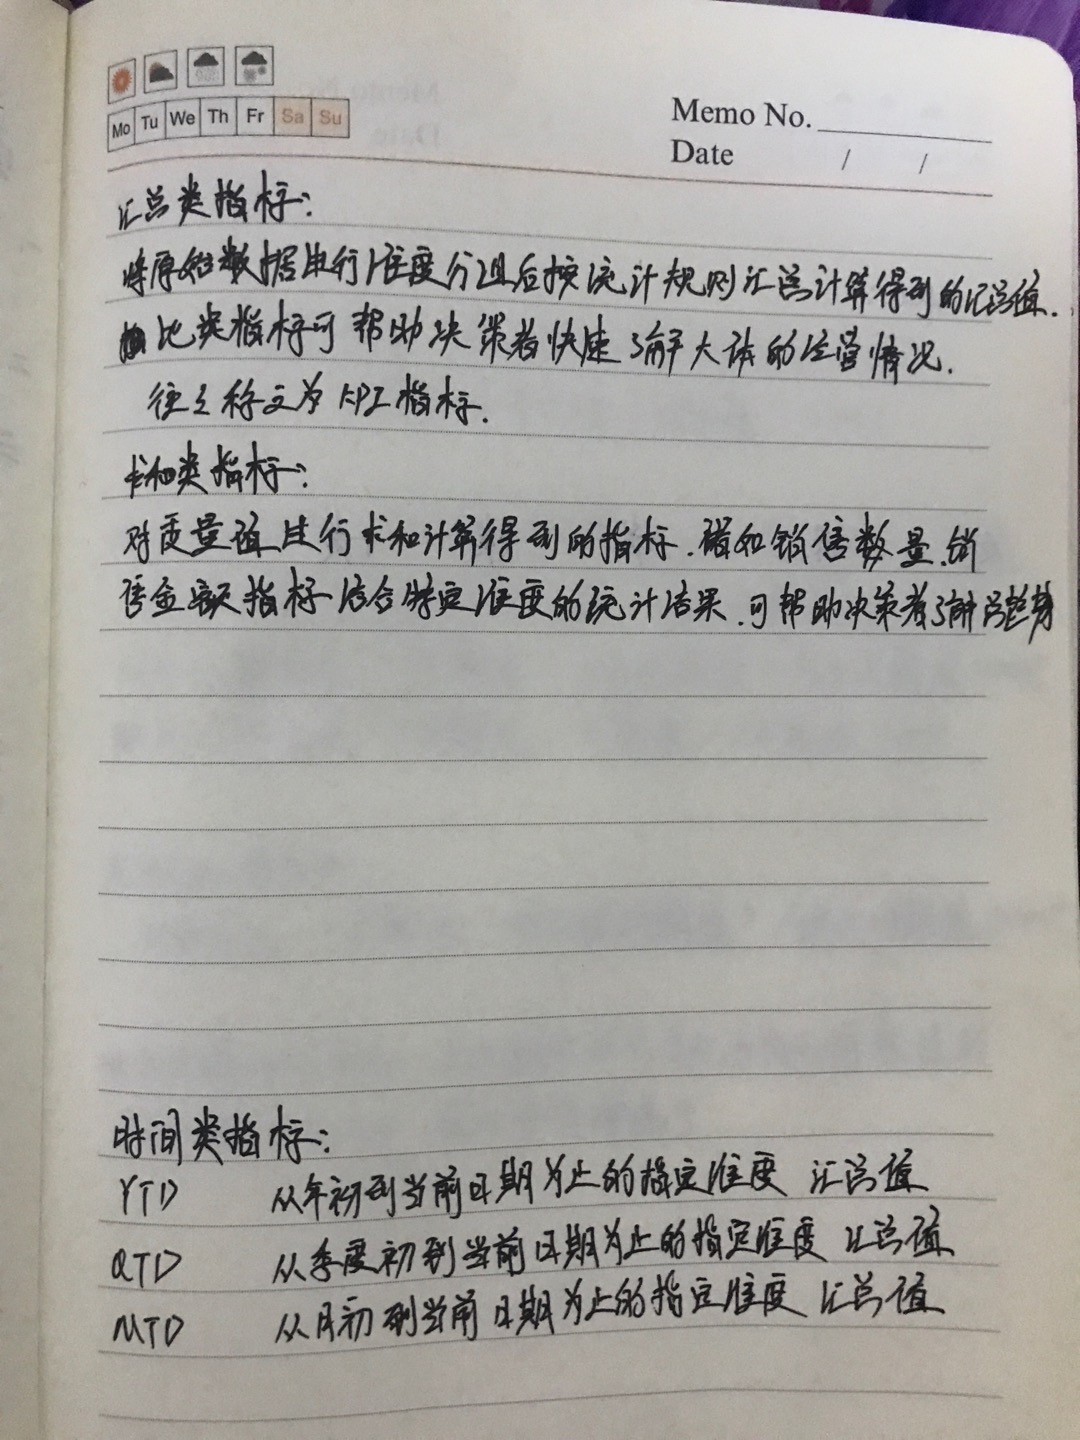 Mo Tu We Th Fr Sa Su
Memo No.
Date / /
汇总类指标:
将原始数据进行维度分组后按统计规则汇总计算得到的汇总值.
此类指标可帮助决策者快速了解大体的运营情况.
往往称之为KPI指标.
求和类指标:
对度量值进行求和计算得到的指标.诸如销售数量.销
售金额指标结合特定维度的统计结果.可帮助决策者了解总趋势
时间类指标:
YTD 从年初到当前日期为止的指定维度 汇总值
QTD 从季度初到当前日期为止的指定维度 汇总值
MTD 从月初到当前日期为止的指定维度 汇总值